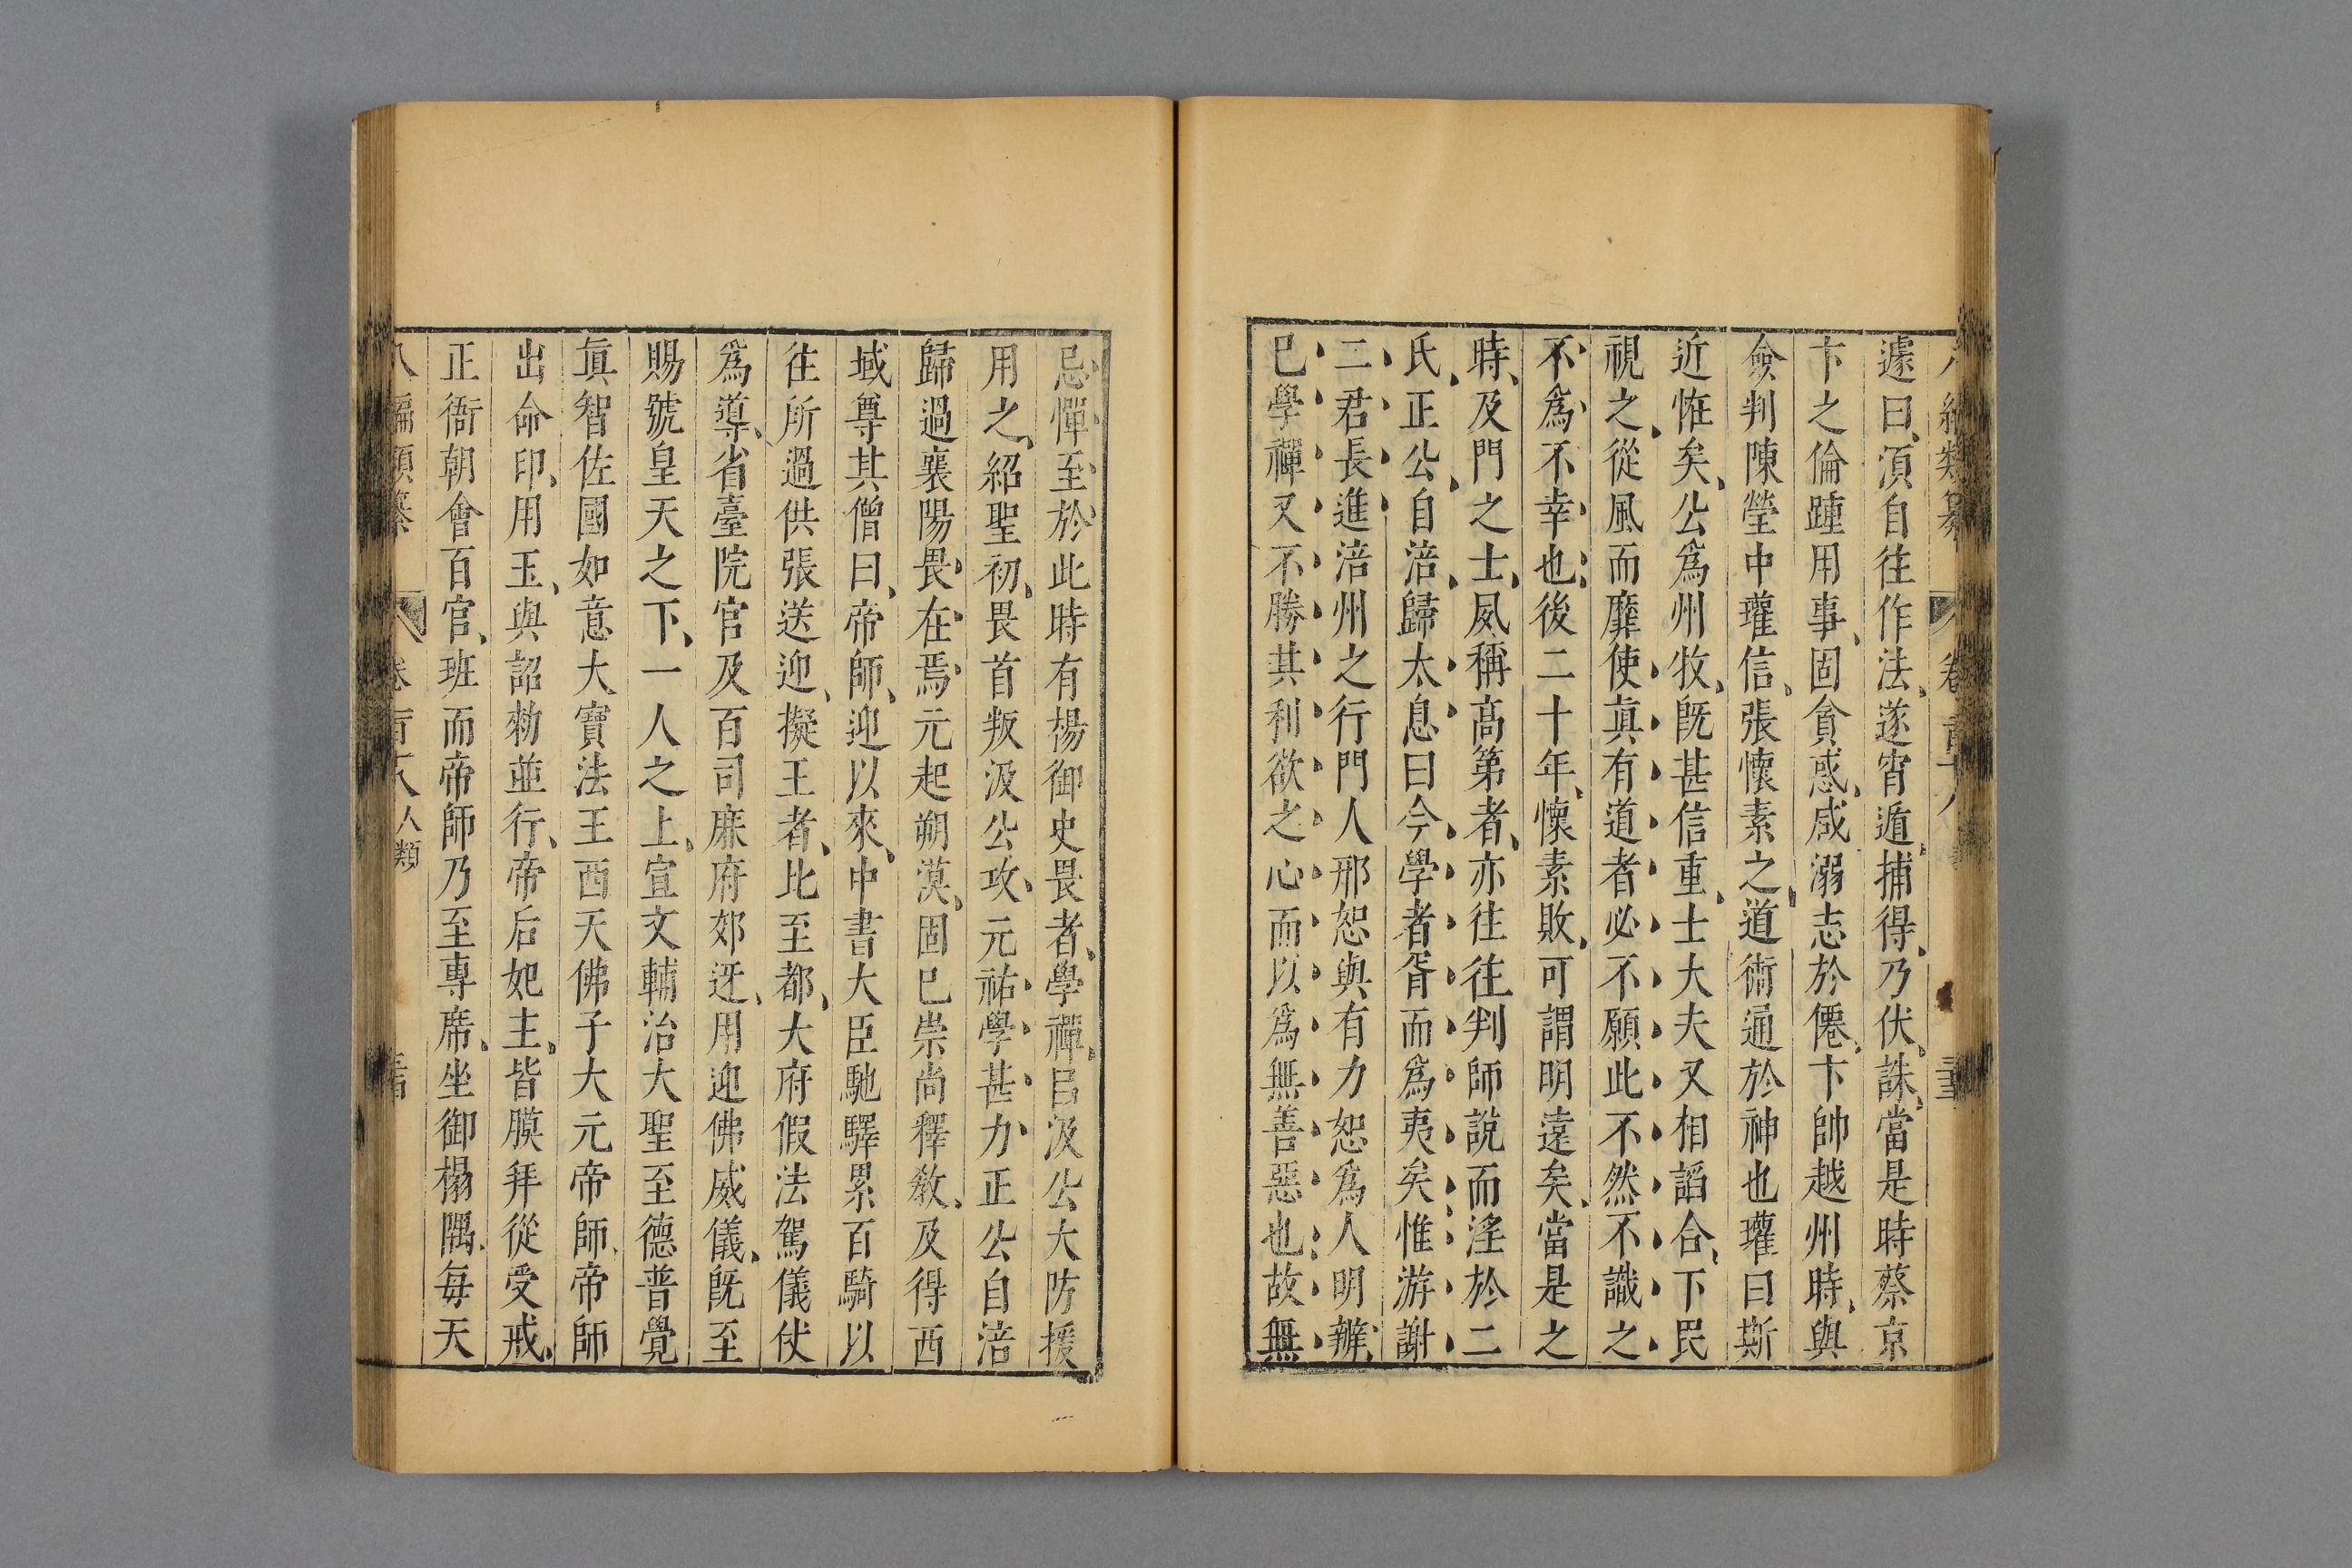 遽曰須自往作法遂宵遁捕得乃伏誅當是時蔡京
卞之倫踵用事固貪惑咸溺志於僊卞帥越州時與
僉判陳瑩中瓘信張懷素之道術通於神也瓘曰斯
近恠矣公為州牧旣甚信重士大夫又相謟合下民
視之從風而靡使眞有道者必不願此不然不識之
不爲不幸也後二十年懷素敗可謂明遠矣當是之
時及門之士夙稱高第者亦往往判師說而淫於二
氏正公自涪歸太息曰今學者胥而爲夷矣惟游謝
二君長進涪州之行門人邢恕與有力恕爲人明辦
巳學禪又不勝其利欲之心而以爲無善惡也故無
忌憚至於此時有楊御史畏者學禪呂汲公大防援
用之紹聖初畏首叛汲公攻元祐學甚力正公自涪
歸過襄陽畏在焉元起朔漠固巳崇尚釋教及得西
域尊其僧曰帝師迎以來中書大臣馳驛累百騎以
往所過供張送迎擬王者比至都大府假法駕儀仗
爲導省臺院官及百司廉府郊迓用迎佛威儀旣至
賜號皇天之下一人之上宣文輔治大聖至德普覺
眞智佐國如意大寶法王西天佛子大元帝師帝師
出命印用玉與詔勑並行帝后妃主皆膜拜從受戒
正衙朝會百官班而帝師乃至專席坐御榻隅每天
人類